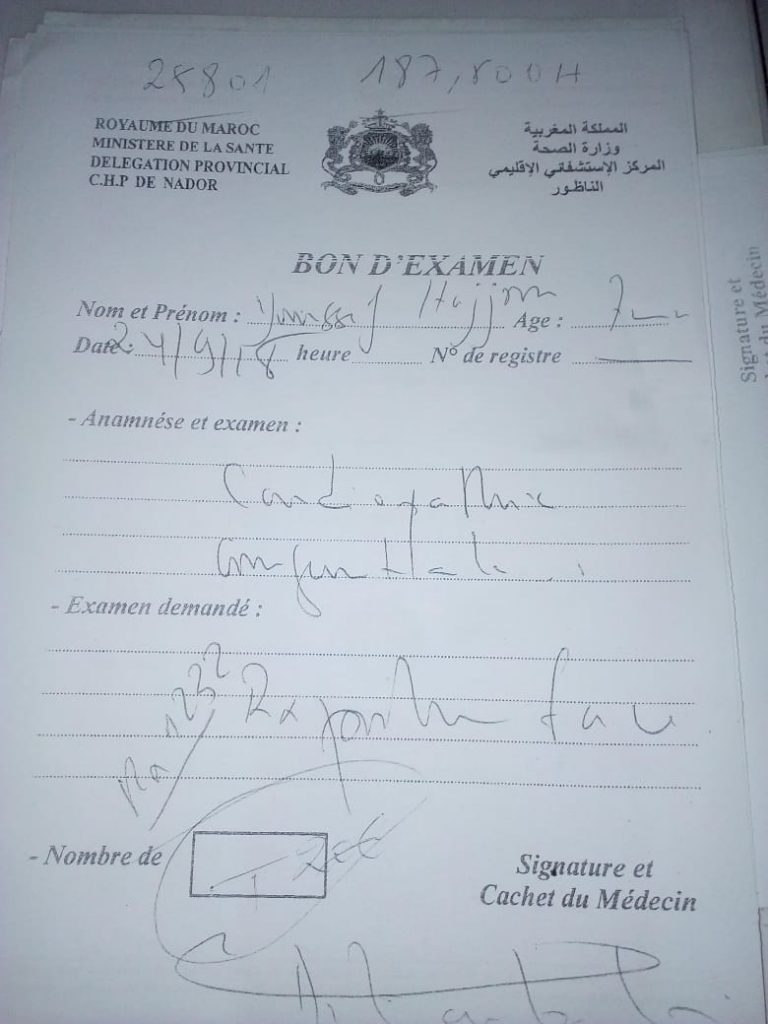 28801 187,800H
ROYAUME DU MAROC
MINISTERE DE LA SANTE
DELEGATION PROVINCIAL
C.H.P DE NADOR
المملكة المغربية
وزارة الصحة
المركز الإستشفائي الإقليمي
الناظور
BON D'EXAMEN
Nom et Prénom : Age :
Date : 24/9/18 heure N° de registre
- Anamnése et examen :
Cardiopathie
congenitale
- Examen demandé :
Rx face
- Nombre de
Signature et
Cachet du Médecin
Signature et
du Médecin